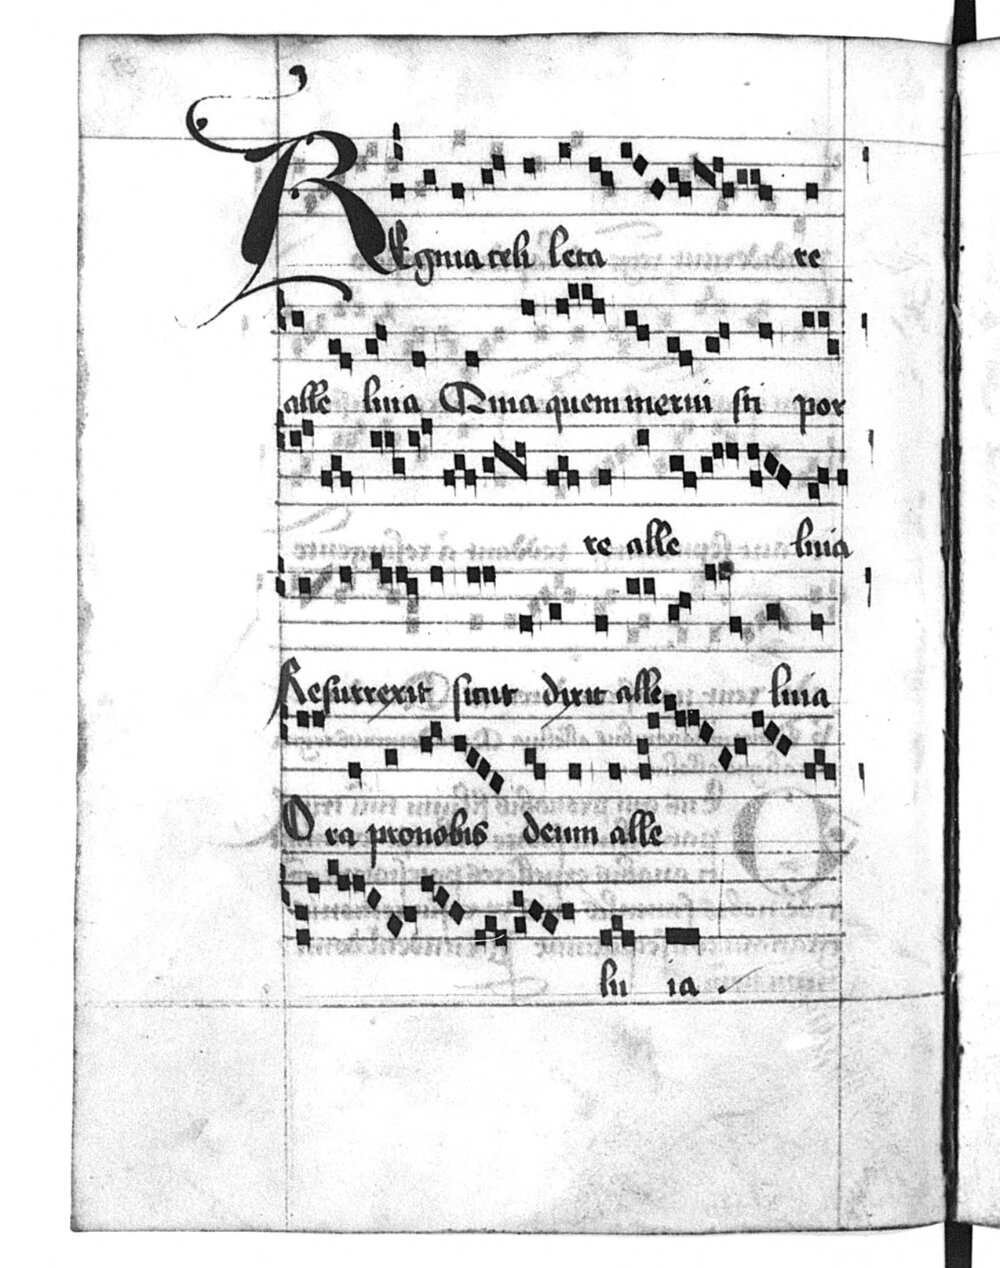 REgina celi leta re
alle luia Quia quem merui sti por
re alle luia
Resurrexit sicut dixit alle luia
Ora pro nobis deum alle
lu ia .